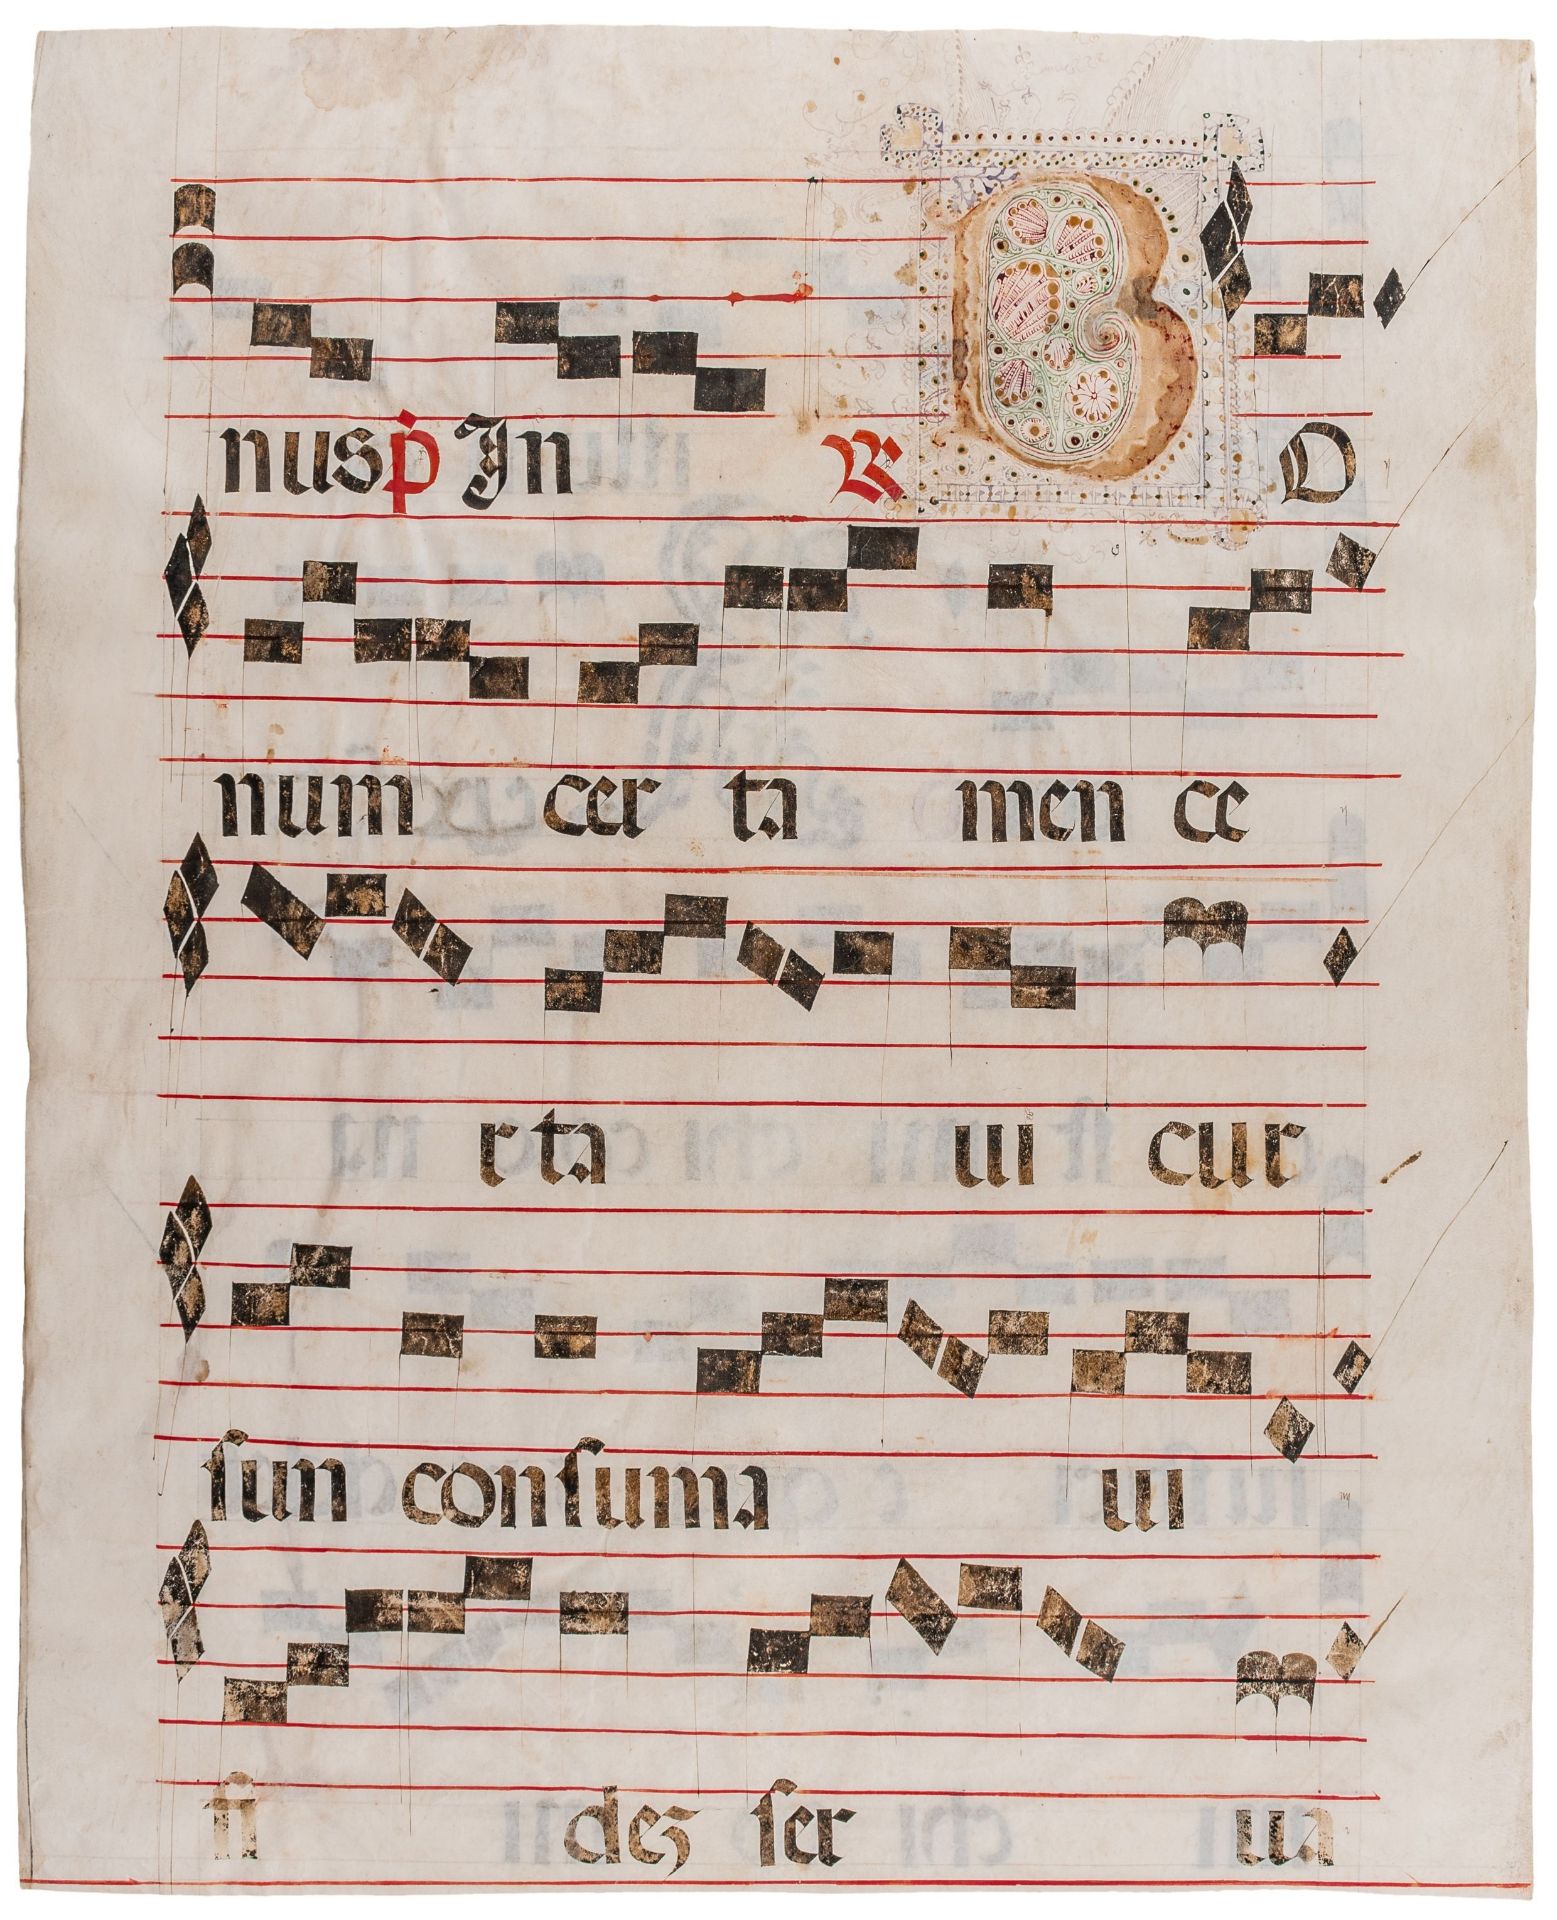 nus p̄ In ℟ B O
num cer ta men ce
r ta ui cur
sun consuma ui
fi dez ser ua